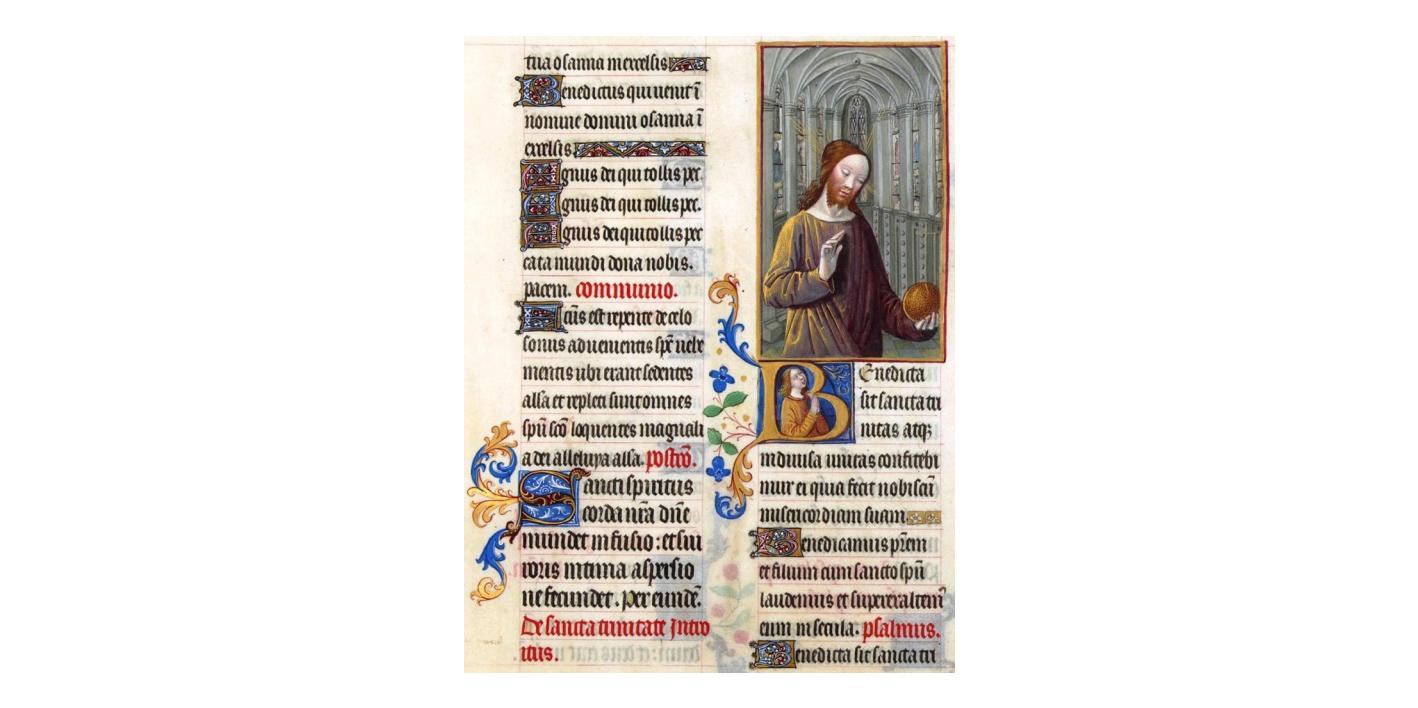 tua osanna in excelsis
Benedictus qui uenit ī
nomine domini osanna ī
excelsis
Agnus dei qui tollis pec.
Agnus dei qui tollis pec.
Agnus dei qui tollis pec
cata mundi dona nobis.
pacem. communio.
Factūs est repente de celo
sonus aduenientis spē uehe
mentis ubi erant sedentes
alla et repleti sunt omnes
spū scō loquentes magnali
a dei alleluya alla. postcō.
Sancti spiritus
corda nr̄a dn̄e
mundet infusio: et sui
roris intima aspersio
ne fecundet. per eundē.
De sancta trinitate Intro
itus.
Benedicta
sit sancta tri
nitas atqꝫ
indiuisa unitas confitebi
mur ei quia fecit nobiscū
misericordiam suam
Benedicamus pr̄em
et filium cum sancto spū
laudemus et superexaltem̄
eum in secula. psalmus.
Benedicta sit sancta tri